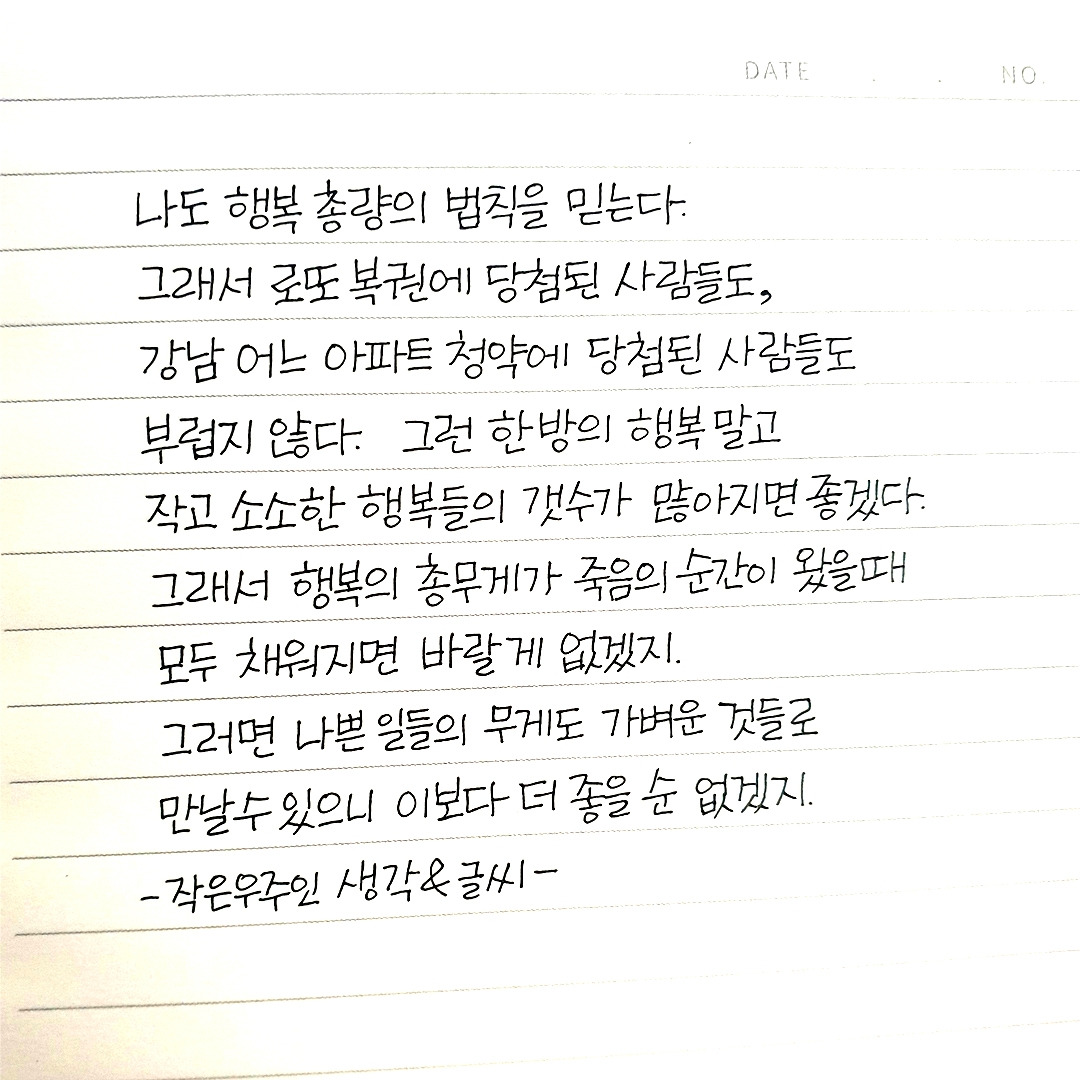 DATE . . NO.
나도 행복 총량의 법칙을 믿는다.
그래서 로또 복권에 당첨된 사람들도,
강남 어느 아파트 청약에 당첨된 사람들도
부럽지 않다. 그런 한방의 행복 말고
작고 소소한 행복들의 갯수가 많아지면 좋겠다.
그래서 행복의 총무게가 죽음의 순간이 왔을때
모두 채워지면 바랄게 없겠지.
그러면 나쁜 일들의 무게도 가벼운 것들로
만날수 있으니 이보다 더 좋을 순 없겠지.
-작은우주인 생각&글씨-